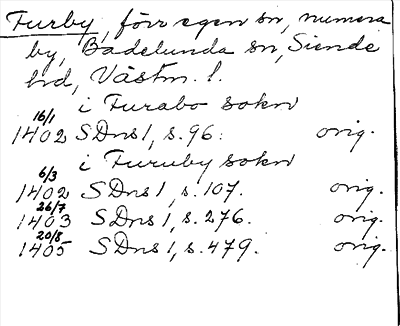 Furby, förr egen sn, numera
by, Badelunda sn, Siende
hd, Västm. l.
i Furabo sokn
16/1
1402 SDns 1, s. 96. orig.
i Furuby sokn
6/3
1402 SDns 1, s. 107. orig.
26/7
1403 SDns 1, s. 276. orig.
20/8
1405 SDns 1, s. 479. orig.